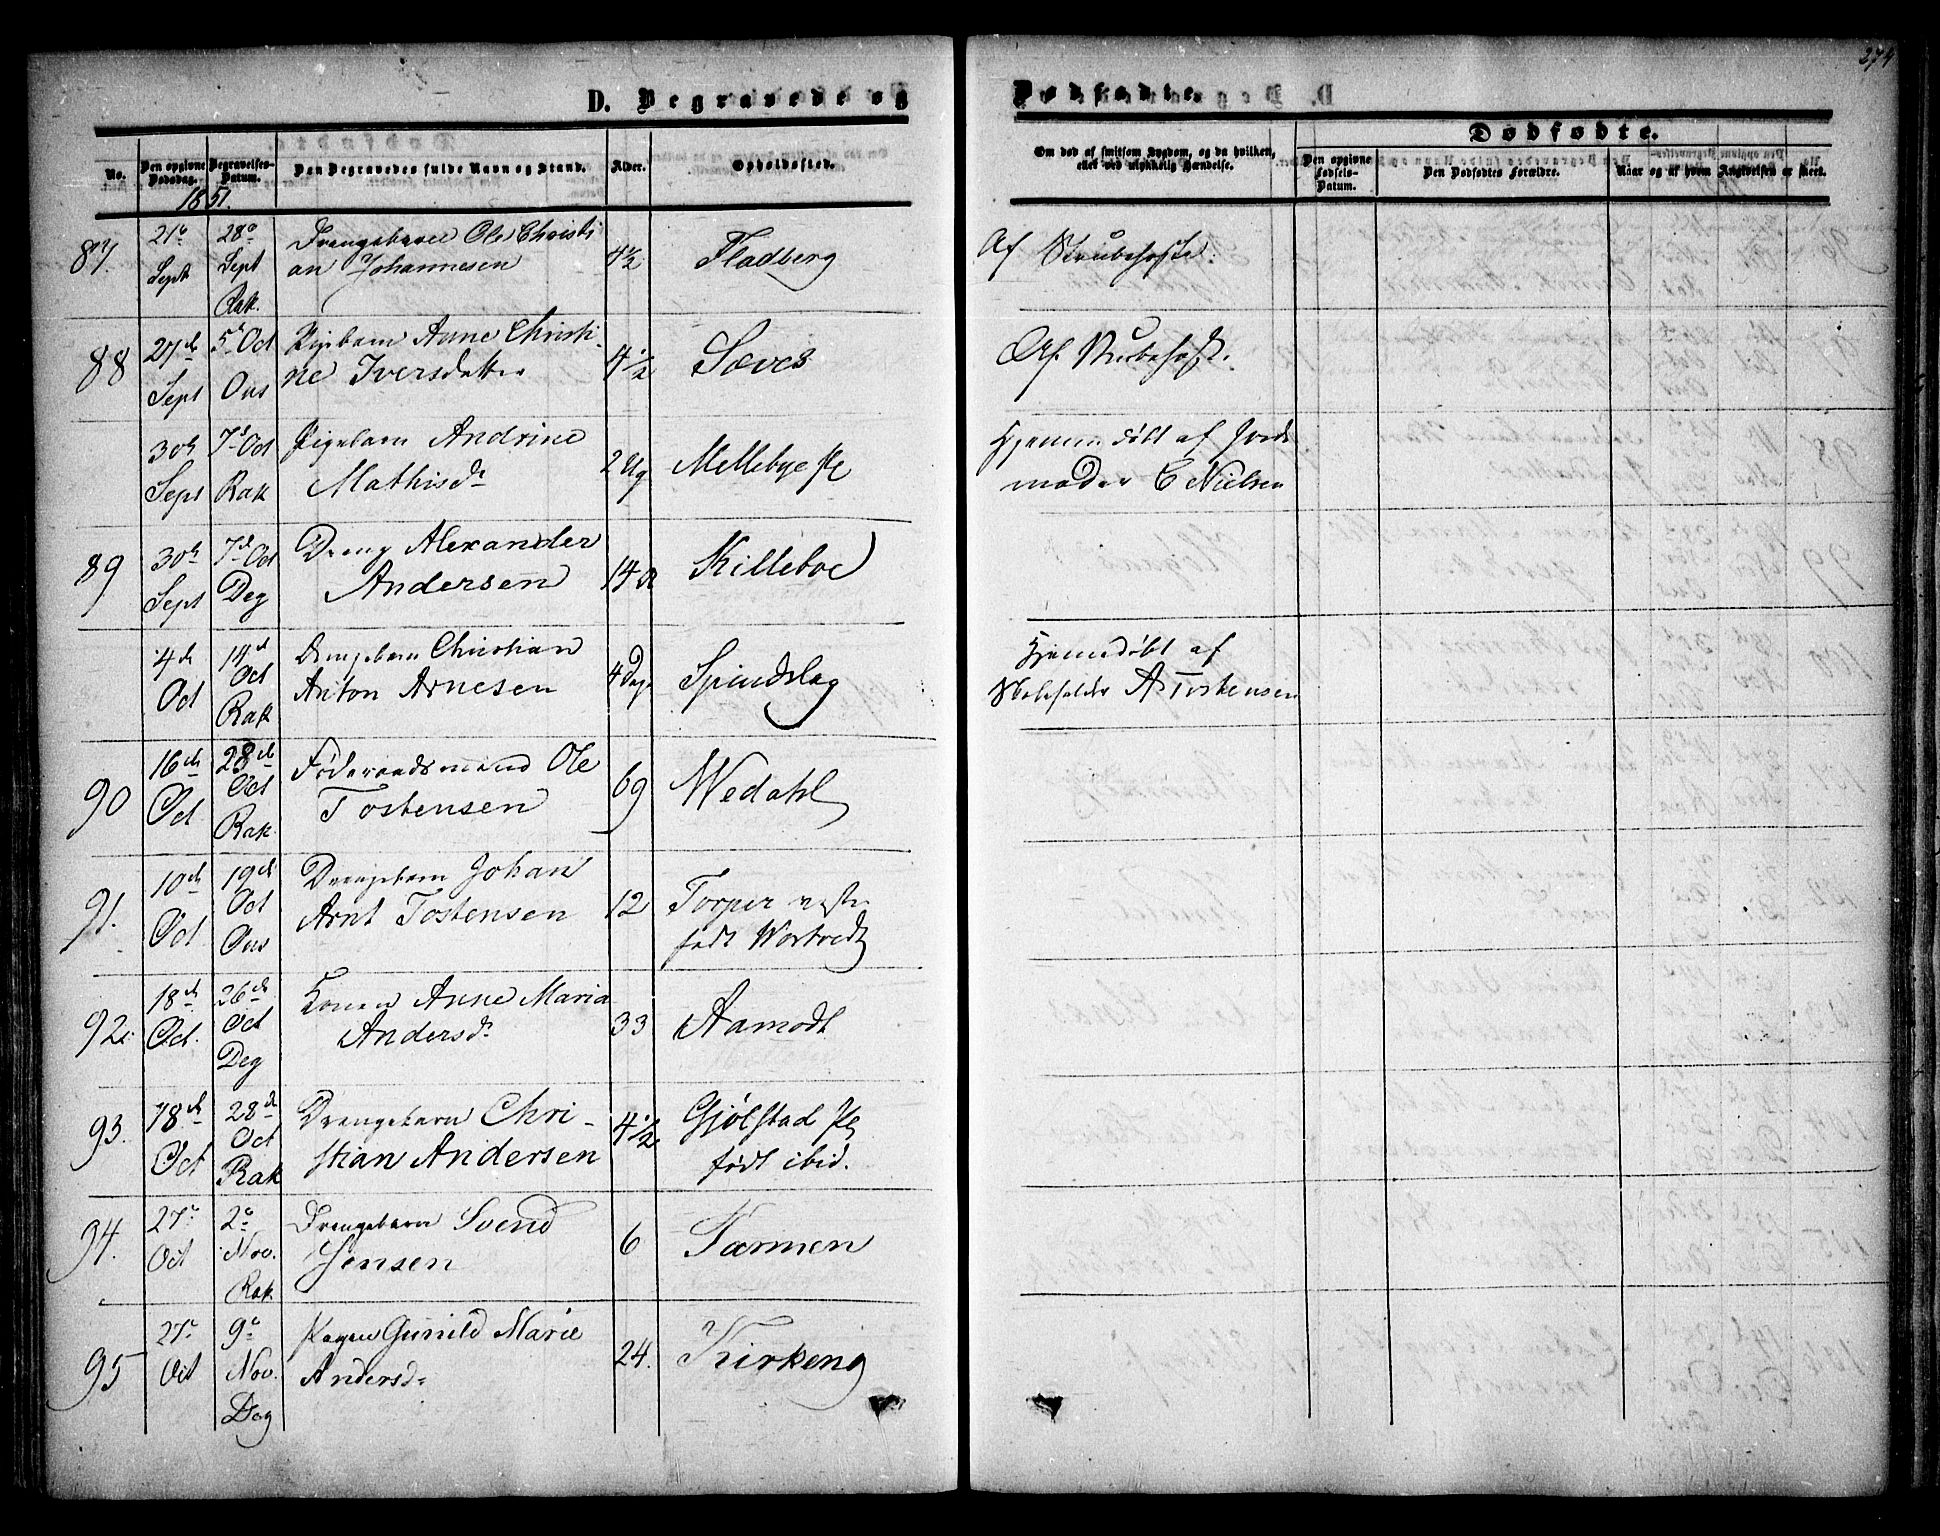 274
D. Begravede og
Dødfødte.
No.
Den opgivne Dødsdag.
Begravelses-Datum.
Den Begravedes fulde Navn og Stand.
Alder.
Opholdssted.
Om død af smitsom Sygdom, og da hvilken,
eller ved ulykkelig Hændelse.
Dødfødte.
Den opgivne Fødsels-Datum.
Den Dødfødtes Forældre.
Naar og af hvem Angivelsen er skeet.
1851.
87. 21de Sept 28de Sept Rak. Drengebarn Ole Christi
an Johannesen 4½ Fladberg Af Strubehoste.
88 27de Sept 5te Oct Ous Pigebarn Anne Christi-
ne Iversdatter 4½ Soves Af Strubehost.
30te Sept 7de Oct Rak Pigebarn Andrine
Mathisdr 2 Ug Mellebye Pl Hjemmedøbt af Jorde
moder C Nielsen
89 30te Sept 7de Oct Deg Dreng Alexander
Andersen 14 Killeboe
4de Oct 14de Oct Rak Drengebarn Christian
Anton Arnesen 4 Dage Spindslag Hjemedøbt af
A Tostensen
90 16de Oct 28de Oct Rak Föderaadsmand Ole
Tostensen 69 Wedahl
91. 10de Oct 19de Oct Ous Drengebarn Johan
Arnt Tostensen 12 Torper
født
92. 18de Oct. 26de Oct Deg Konen Anne Maria
Andersdr 33 Aamodt
93. 18de Oct 28de Oct Rak Drengebarn Chri-
stian Andersen 4½ Gjölstad Pl
født ibid.
94. 27de Oct 2de Nov. Rak Drengebarn Svend
Jensen 6 Tarmen
95 27de Oct 9de Nov. Deg Gunild Marie
Andersdr 24. Kirkeng